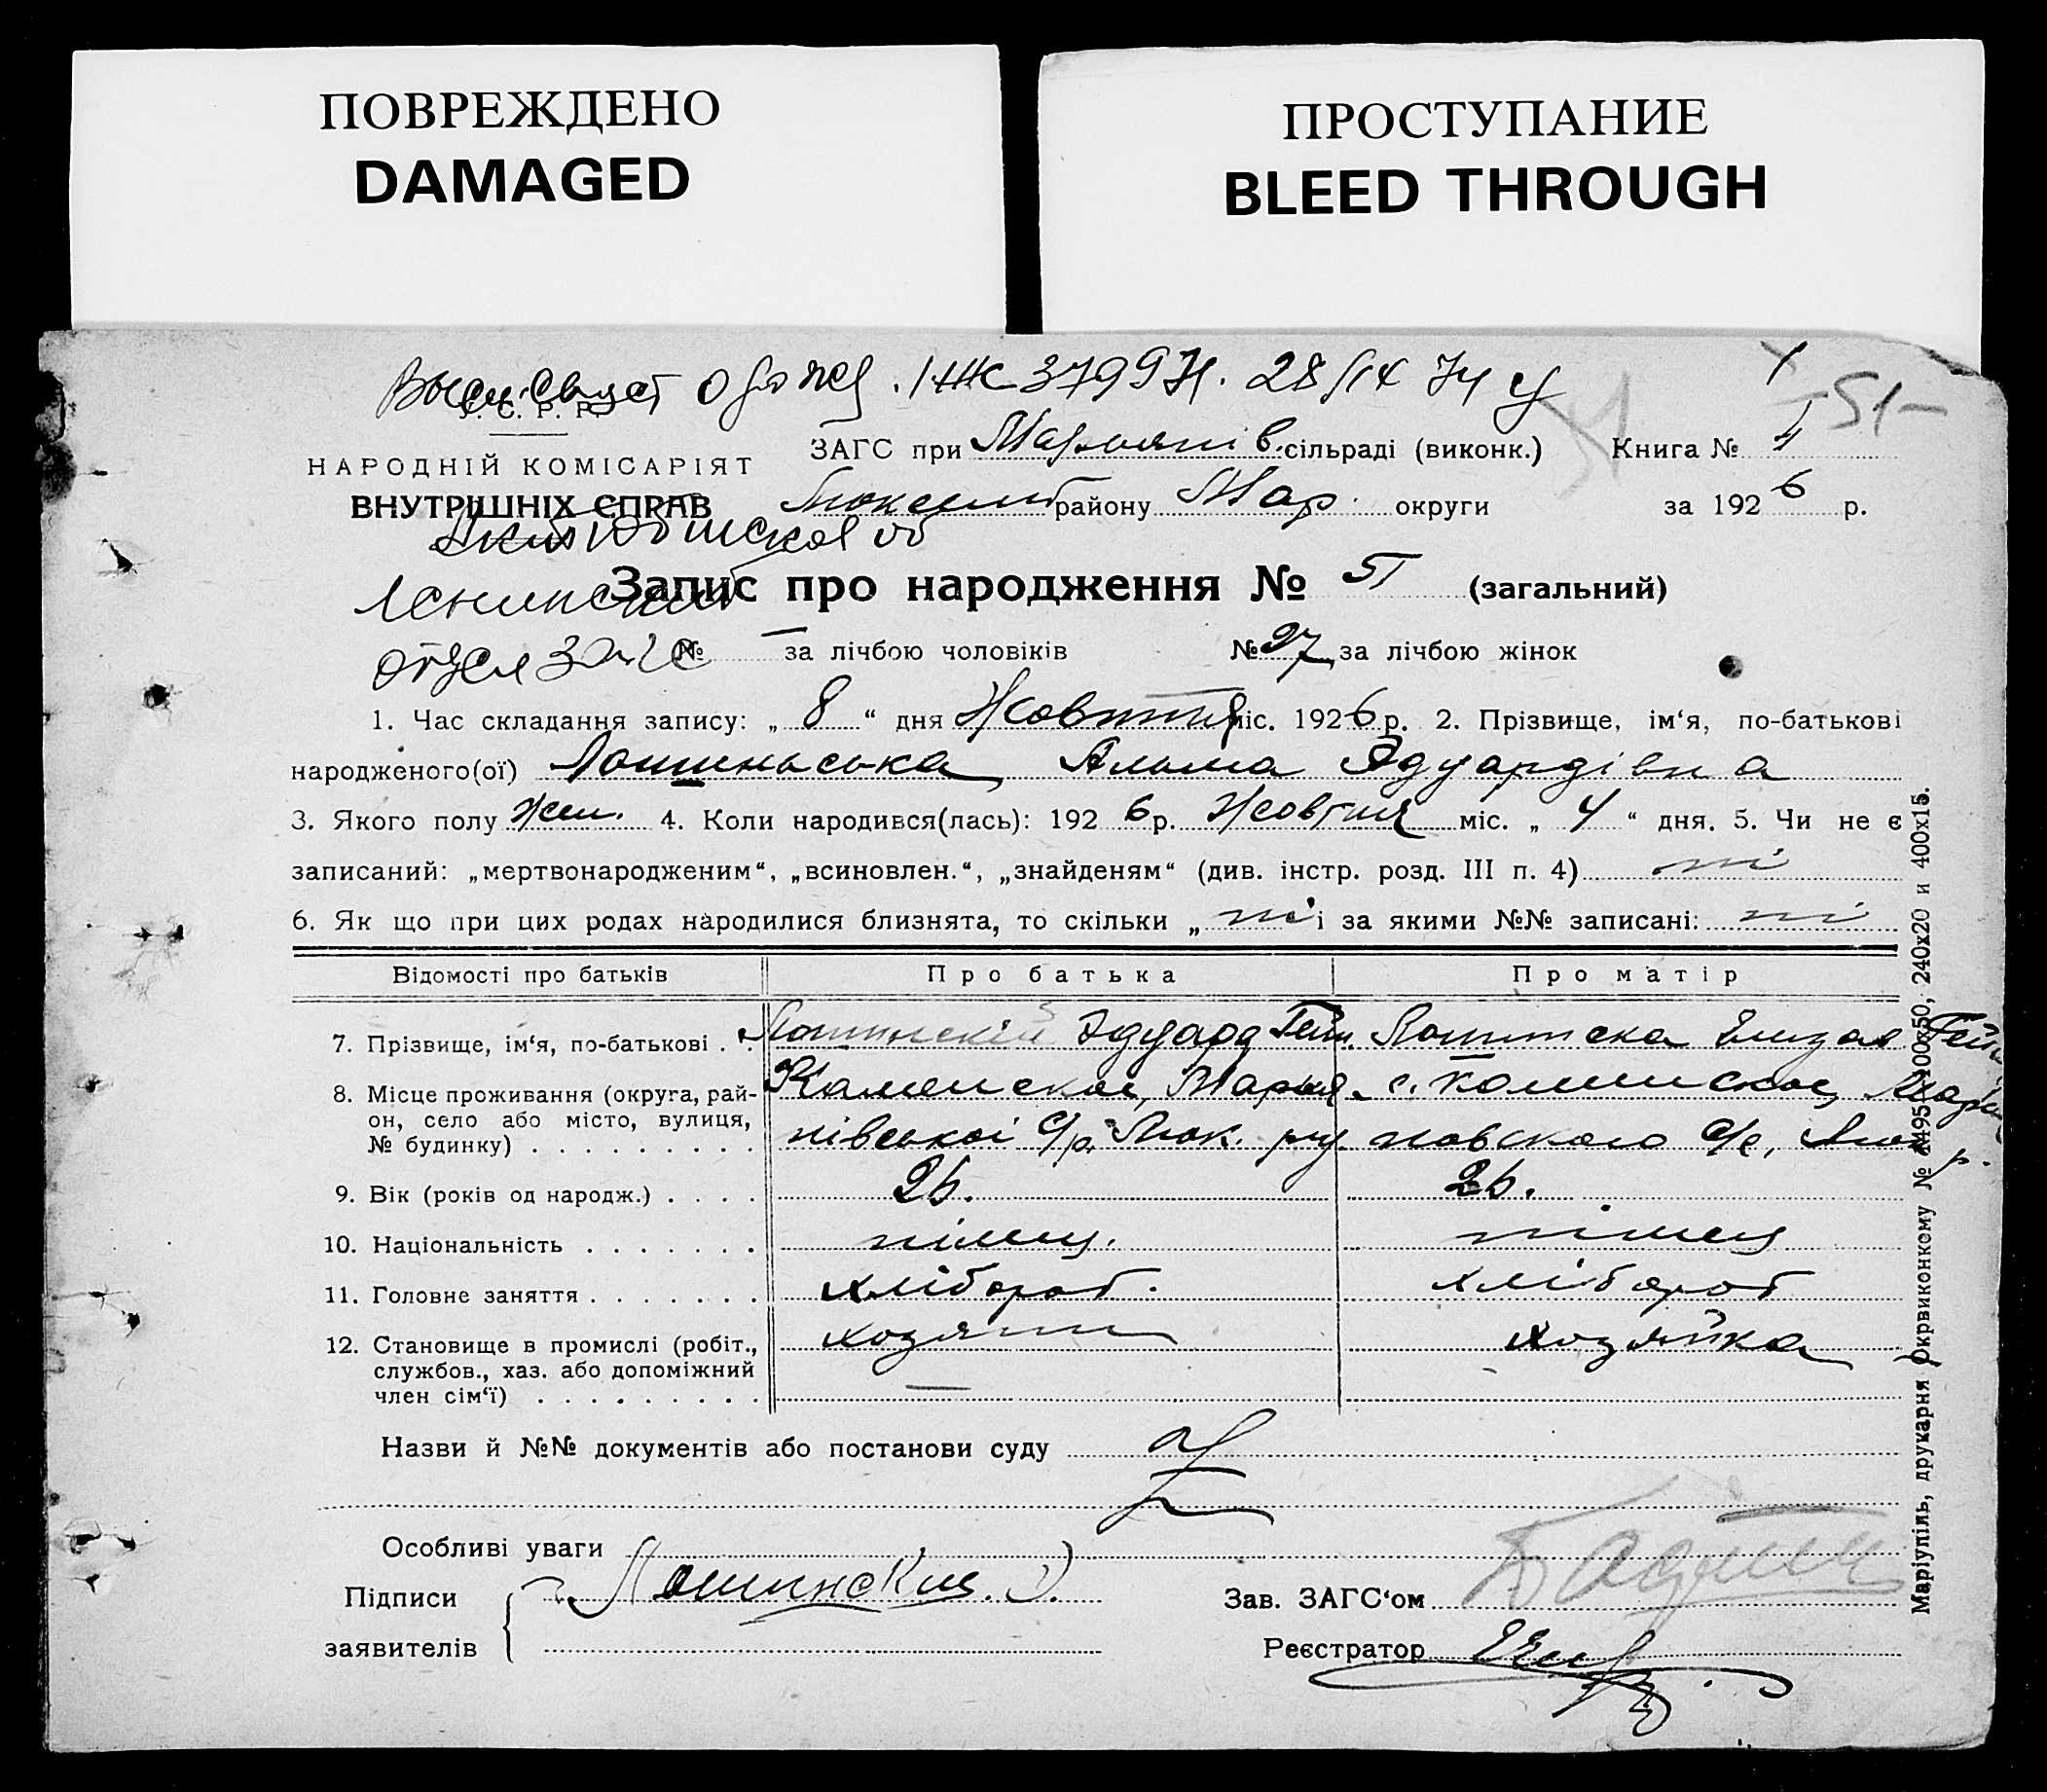 ПОВРЕЖДЕНО
DAMAGED
ПРОСТУПАНИЕ
BLEED THROUGH
379971. 28/IX 74
С. Р. Р.
51
НАРОДНІЙ КОМІСАРІЯТ
ВНУТРІШНІХ СПРАВ
ЗАГС при Марьянів. сільраді (виконк.) Книга №
району Мар. округи за 1926 р.
Запис про народження № 51 (загальний)
Ленинский
отдел загс
№ — за лічбою чоловіків № 27 за лічбою жінок
1. Час складання запису: „ 8 “ дня Жовтня міс. 1926 р. 2. Прізвище, ім‘я, по-батькові
народженого(ої) Лошиньська Альма Эдуардівна
3. Якого полу Жен. 4. Коли народився(лась): 1926 р. Жовтня міс. „ 4 “ дня. 5. Чи не є
записаний: „мертвонародженим“, „всиновлен.“, „знайденям“ (див. інстр. розд. III п. 4) ні
6. Як що при цих родах народилися близнята, то скільки „ ні і за якими №№ записані: ні
Відомості про батьків Про батька Про матір
7. Прізвище, ім‘я, по-батькові . . Лошинскій Эдуард
8. Місце проживання (округа, рай-
он, село або місто, вулиця,
№ будинку) . . . . . . . . .
Каменское, Марья-
нівської с/р Люк. р-у
с. Каменское,
новского с/с,
9. Вік (років од народж.) . . . . 26. 26.
10. Національність . . . . . . . німец. німец
11. Головне заняття . . . . . . . хлібороб. хлібороб
12. Становище в промислі (робіт.,
службов., хаз. або допоміжний
член сім‘ї) . . . . . . . . .
хозяин хозяйка
—
Назви й №№ документів або постанови суду
Особливі уваги
Підписи
заявителів
Лошинский. Э.
Зав. ЗАГС‘ом
Реєстратор
Маріупіль, друкарня Окрвиконкому № 1495-100х50, 240х20 и 400х15.